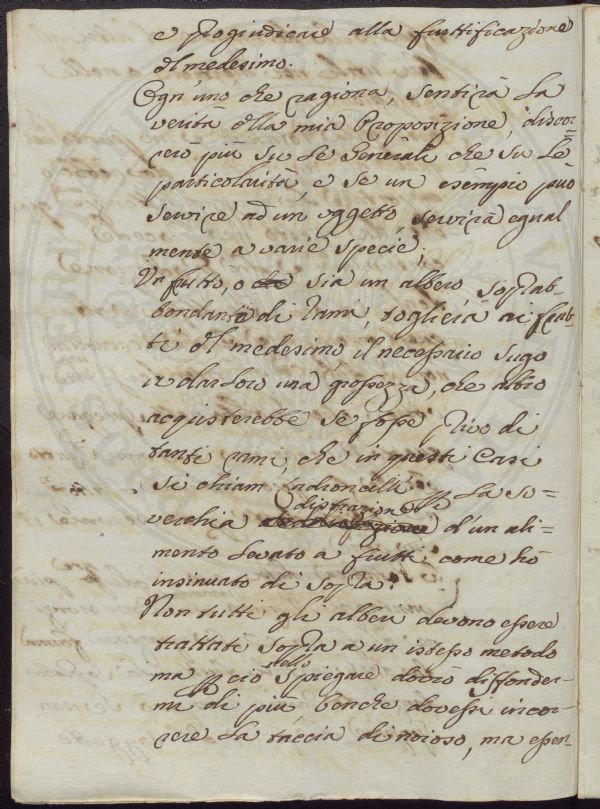 e pregiudicare alla fruttificazione
del medesimo.
Ogn'uno che ragiona, sentirà la
verità della mia Proposizione, discor=
rerò più su le Generali che su le
particolarità, e se un esempio può
servire ad un oggetto, servirà egual
mente a varie specie;
Un frutto, o sia un albero soprab-
bondante di rami, toglierà ai frut-
ti del medesimo, il necessario sugo
a dar loro una grossezza, che altro
acquisterebbe se fosse privo di
tanti rami, che in questi Casi
si chiam ladroncelli per La so=
verchia distrazione d'un ali=
mento levato a frutti come hò
insinuato di sopra.
Non tutti gli alberi devono essere
trattati sopra a un istesso metodo
ma per ciò spiegare dovrò diffonder-
mi di più benche dovessi incor-
rere la taccia di noioso, ma essen